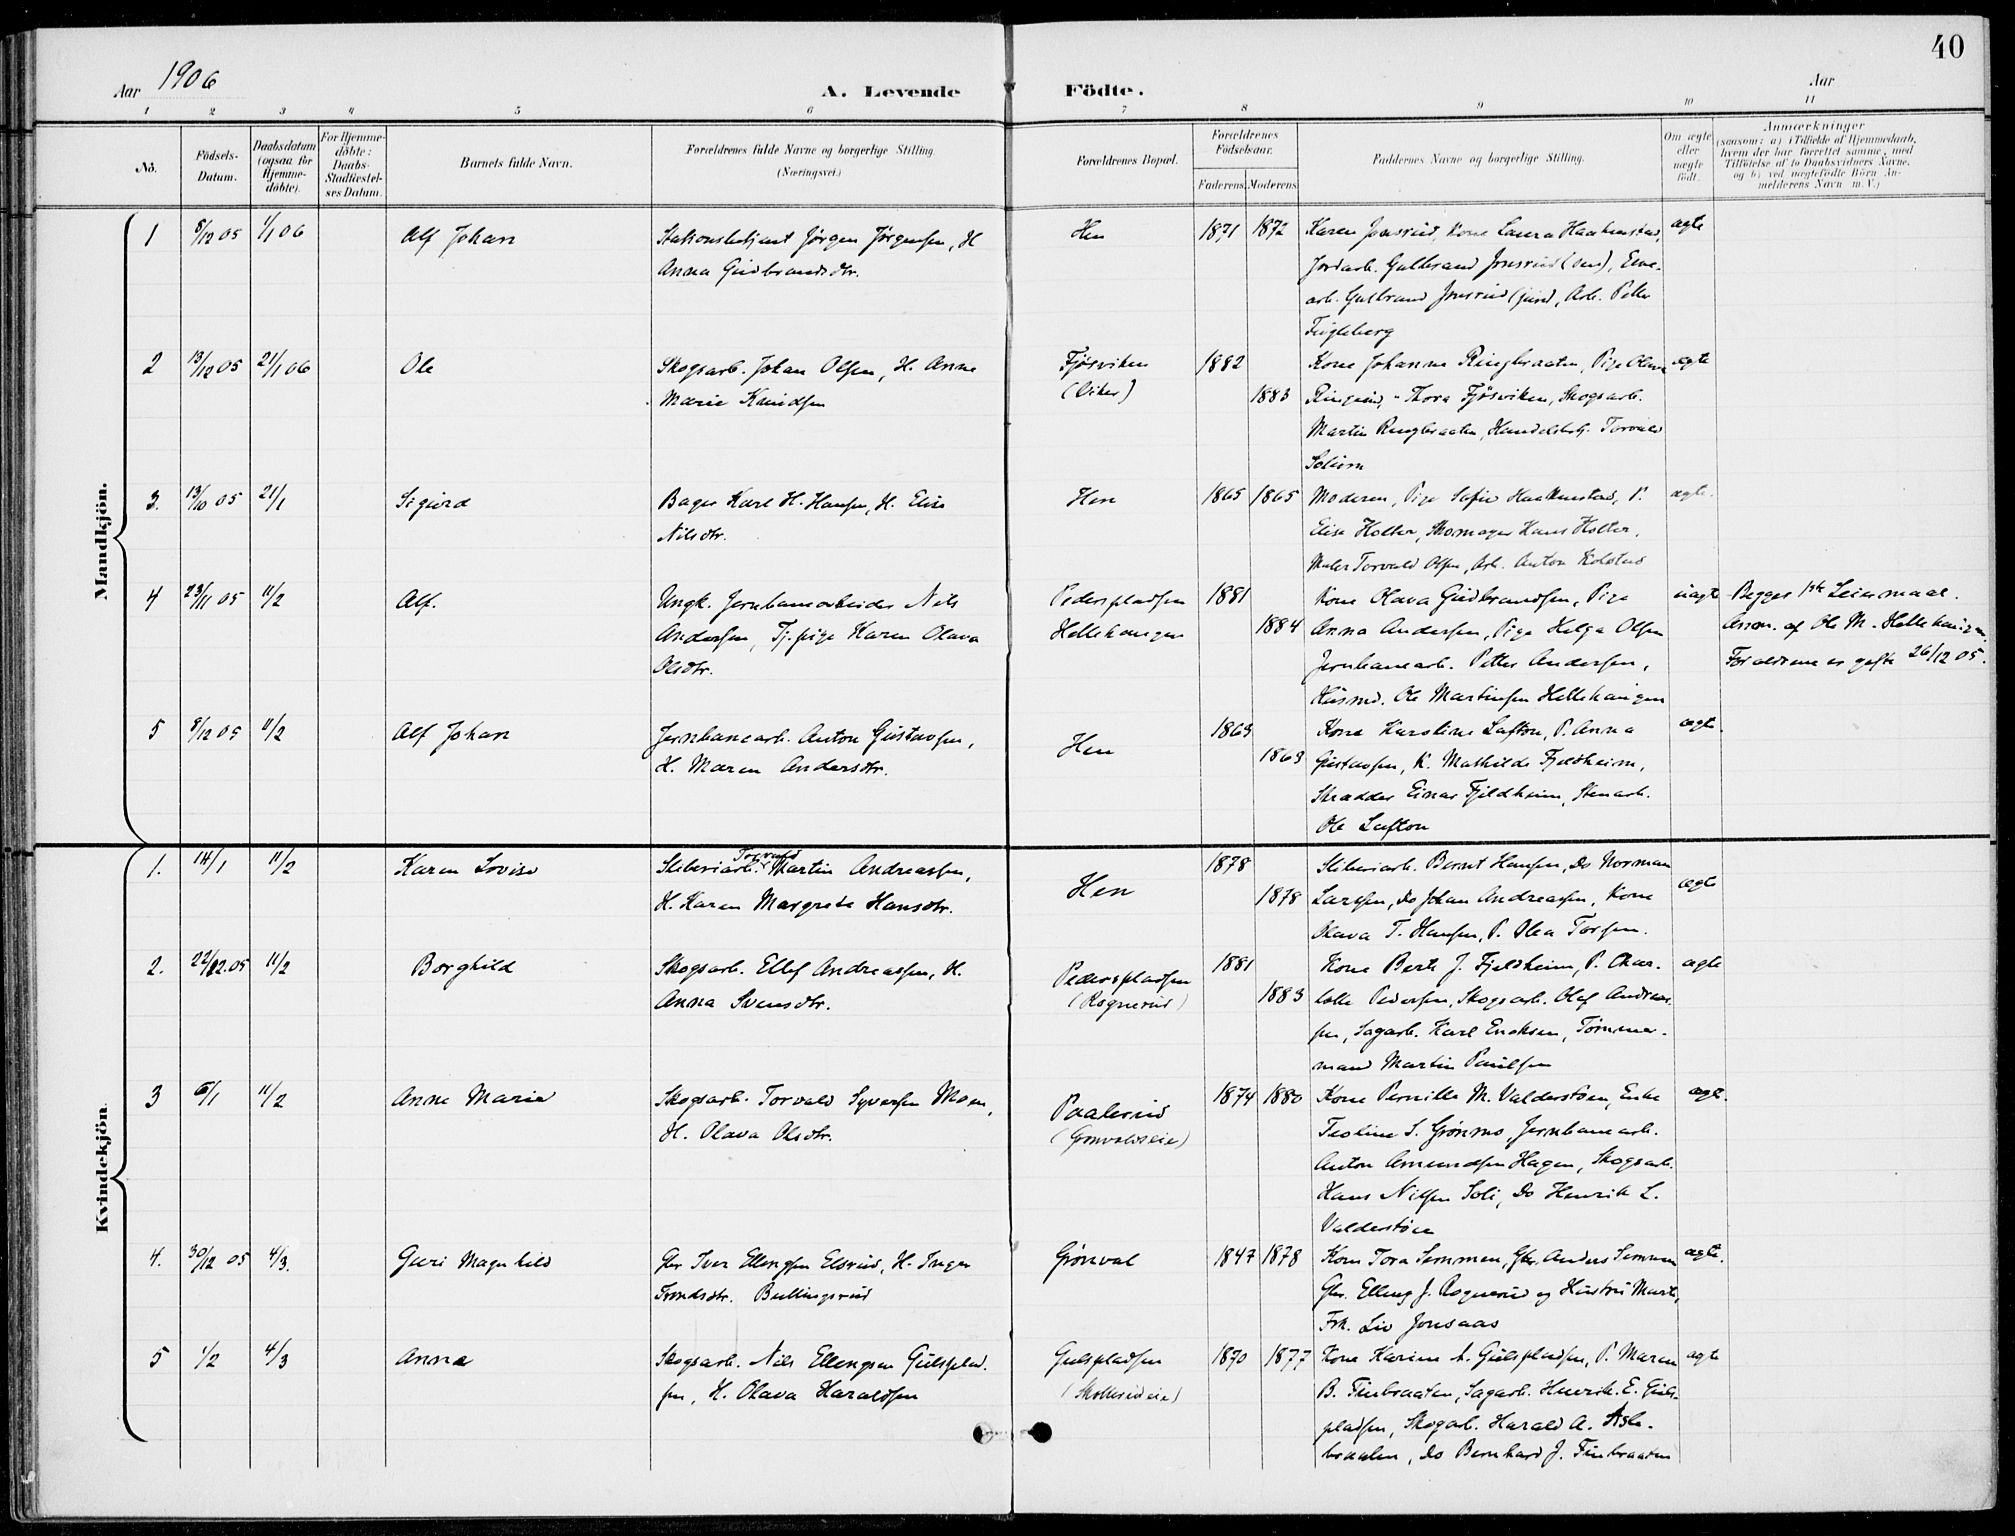 40
Aar 1906
A. Levende Födte.
Aar
1 2 3 4 5 6 7 8 9 10 11
No.
Födsels-Datum.
Daabsdatum (ogsaa for Hjemme-döbte).
For Hjemme-döbte: Daabs-Stadfæstel-ses Datum.
Barnets fulde Navn.
Forældrenes fulde Navne og borgerlige Stilling (Næringsvei.)
Forældrenes Bopæl.
Forældrenes Födselsaar.
Faderens Moderens
Faddernes Navne og borgerlige Stilling.
Om ægte eller uægte födt.
Anmærkninger (saasom: a) i Tilfælde af Hjemmedaab, hvem der har forrettet samme, med Tilföielse af to Daabsvidners Navne, og b) ved uægtefödte Börn An-melderens Navn m. V.)
Mandkjön.
1 8/12 05 1/1 06 Alf Johan
Stationsbetjent Jörgen Jörgensen, H.
Anna Gudbrandsdtr.
Hen 1871 1872
Karen Jonsrud, Kone Laura Haakenstad,
Jordarb. Gulbrand Jonsrud (sen),
arb. Gulbrand Jonsrud (jun), Arb. Petter
Fugleberg
ægte
2 13/12 05 21/1 06 Ole
Skogsarb. Johan Olsen, H. Anne
Marie Knudsen
Fjösviken
(Viker)
1882 1883
Kone Johanne Ringbraaten, Pige Olava
Ringerud, " Thora Fjösviken, Skogsarb.
Martin Ringbraaten, Handelsbtj. Torvald
Solum
ægte
3. 13/10 05 21/1 Sigurd
Bager Karl H. Hansen, H. Elise
Nilsdtr.
Hen 1865 1865
Moderen, Pige Sofie Haakenstad, P.
Elise Holter, Skomager Hans Holter,
Maler Torvald Olsen, Arb. Anton Kolstad
ægte.
4 23/11 05 11/2 Alf.
Ungk. Jernbanearbeider Nils
Andersen, Tj.pige Karen Olava
Olsdtr.
Pederspladsen
Hellehaugen
1881 1884
Kone Olava Gudbrandsen, Pige
Anna Andersen, Pige Helga Olsen
Jernbanearb. Petter Andersen,
Husmd. Ole Martinsen Hellehaugen
uægte
Begges 1ste Leiermaal.
Anm. af Ole M. Hellehaugen.
Forældrene er gifte 26/12 05.
5 8/12 05 11/2 Alf Johan
Jernbanearb. Anton Gustavsen,
H. Maren Andersdtr.
Hen 1863 1863
Kone Karoline Lafton, P. Anna
Gustavsen, K. Mathilde Fjeldheim,
Skrædder Einar Fjeldheim, Stenarb.
Ole Lafton
ægte.
Kvindekjön.
1. 14/1 11/2 Karen Lovise
Sliberiarb. Torvald Martin Andreassen,
H. Karen Margrete Hansdtr.
Hen 1878 1878
Sliberiarb. Bernt Hansen, Do Norman
Larsen, do Johan Andreassen, Kone
Olava T. Hansen, P. Olea Torsen.
ægte
2. 22/12.05 11/2 Borghild
Skogsarb. Ellef Andreassen, H.
Anna Svensdtr.
Pederspladsen
(Rognerud)
1881 1883
Kone Berte J. Fjeldheim, P. Char-
lotte Pedersen, Skogsarb. Olaf Andreas-
sen, Sagarb. Karl Enoksen, Tømmer-
mand Martin Paulsen
ægte
3 6/1 11/2 Anne Marie
Skogsarb. Torvald Syversen Moen,
H. Olava Olsdtr.
Paalerud
(Grønvoldseie)
1874 1880
Kone Pernille M. Valderstøen, Enke
Teoline S. Grönmo, Jernbanearb.
Anton Amundsen Hagen, Skogsarb.
Hans Nilsen Soli, Do Henrik L.
Valderstöen
ægte.
4. 30/12 05 4/3. Guri Magnhild
Gbr. Iver Ellingsen Elsrud, H. Inger
Trondsdtr. Bullingsrud
Grønvol 1847 1878
Kone Tora Semmen, Gbr. Anders Semmen
Gbr. Elling J. Rognerud og Hustru Marte,
Frk. Liv Jonsaas
ægte.
5 1/2 4/3 Anna
Skogsarb. Nils Ellingsen Gulsplad-
sen, H. Olava Haraldsen
Gulspladsen
(Skollerudeie)
1870 1877
Kone Karine A. Gulspladsen, P. Maren
B. Finbraaten, Sagarb. Henrik E. Guls-
pladsen, Skogarb. Harald A. Aske-
braaten, do Bernhard J. Finbraaten
ægte